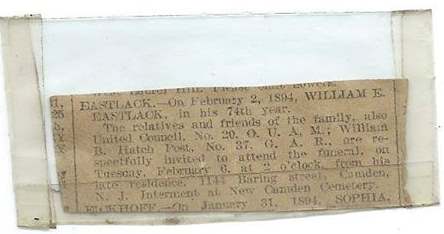 EASTLACK.—On February 2, 1894, WILLIAM E.
EASTLACK, in his 74th year.
The relatives and friends of the family, also
United Council, No. 20, O. U. A. M.; William
B. Hatch Post, No. 37, G. A. R., are re-
spectfully invited to attend the funeral, on
Tuesday, February 6, at 2 o'clock, from his
late residence, 1144 Baring street, Camden,
N. J. Interment at New Camden Cemetery.
On January 31, 1894, SOPHIA,